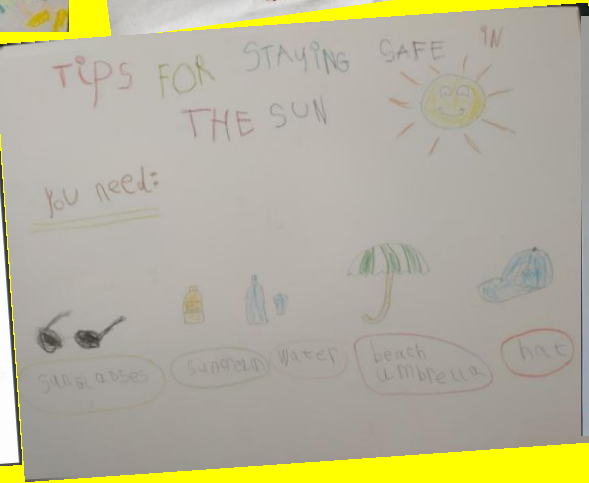 TiPS FOR STAYING SAFE IN
THE SUN
You need:
sunglasses
water
beach
umbrella
hat